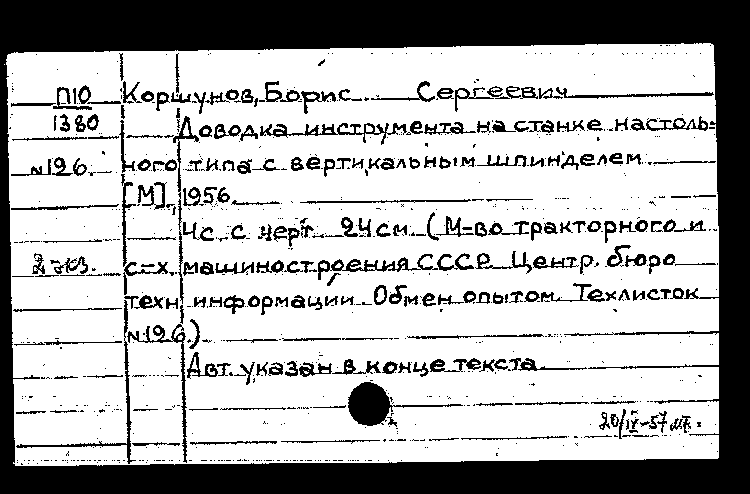 П10 Коршунов, Борис Сергеевич
1380 Доводка инструмента на станке настоль-
№196. ного типа с вертикальным шпинделем.
[М], 1956.
4с. с черт. 24см. (М-во тракторного и
2 экз. с=х. машиностроения СССР. Центр. бюро
техн. информации. Обмен опытом. Техлисток
№196.)
Авт. указан в конце текста.
20/IV-57